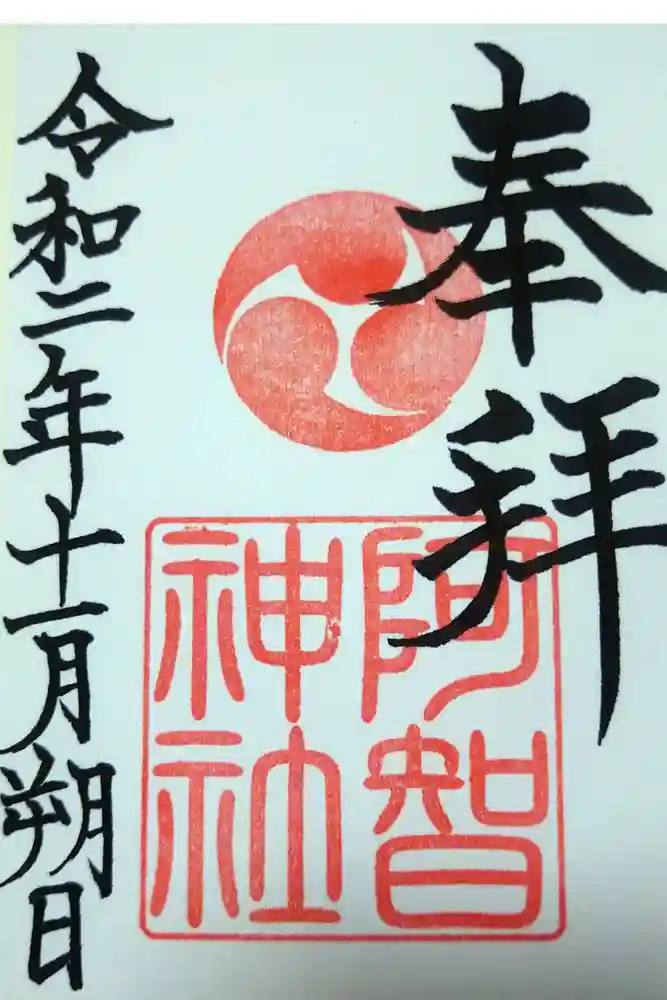 奉拝
阿智
神社
令和二年十一月朔日